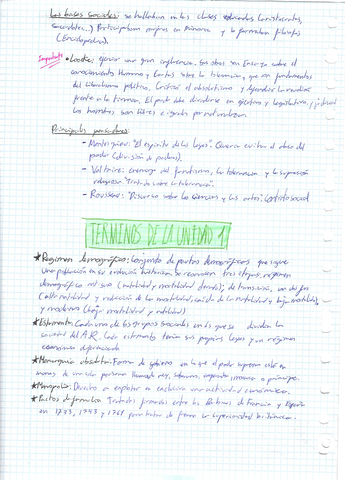 Las bases sociales: se hallaban en las clases educadas (aristócratas,
sacerdotes...) Participaron mujeres en minoría y lo formaban filósofos
(Enciclopedia).
Importante • Locke: ejerció una gran influencia. Sus obras son Ensayo sobre el
conocimiento Humano y Cartas sobre la tolerancia, que son fundamentos
del liberalismo político. Critica el absolutismo y defendía la
frente a la tiranía. El poder debe dividirse en ejecutivo y legislativo
los hombres son libres e iguales por naturaleza.
Principales pensadores:
- Montesquieu: "El espíritu de las leyes". Quería evitar el abuso del
poder (división de poderes).
- Voltaire: enemigo del fanatismo, la intolerancia y la superstición
religiosa "Tratado sobre la tolerancia".
- Rousseau: "Discurso sobre las ciencias y las artes", contrato social
TÉRMINOS DE LA UNIDAD 1
★Regimen demográfico: Conjunto de pautas demográficas que sigue
una población en su evolución histórica. Se reconocen tres etapas: regimen
demográfico antiguo (natalidad y mortalidad elevada), de transición, con dos fases
(alta natalidad y reducción de la mortalidad, caída de la natalidad y baja mortalidad)
y moderno (baja mortalidad y natalidad)
★Estamento: Cada uno de los grupos sociales en los que se dividía la
sociedad del A.R. Cada estamento tenía sus propias leyes y un régimen
económico diferenciado
★Monarquía absoluta: Forma de gobierno en la que el poder supremo está en
manos de una sola persona llamada rey,
★Monopolio: Derecho a explotar en exclusiva una actividad económica.
★Pactos de familia: Tratados firmados entre los Borbones de Francia y España
en 1733, 1743 y 1761 para tratar de frenar la superioridad británica.